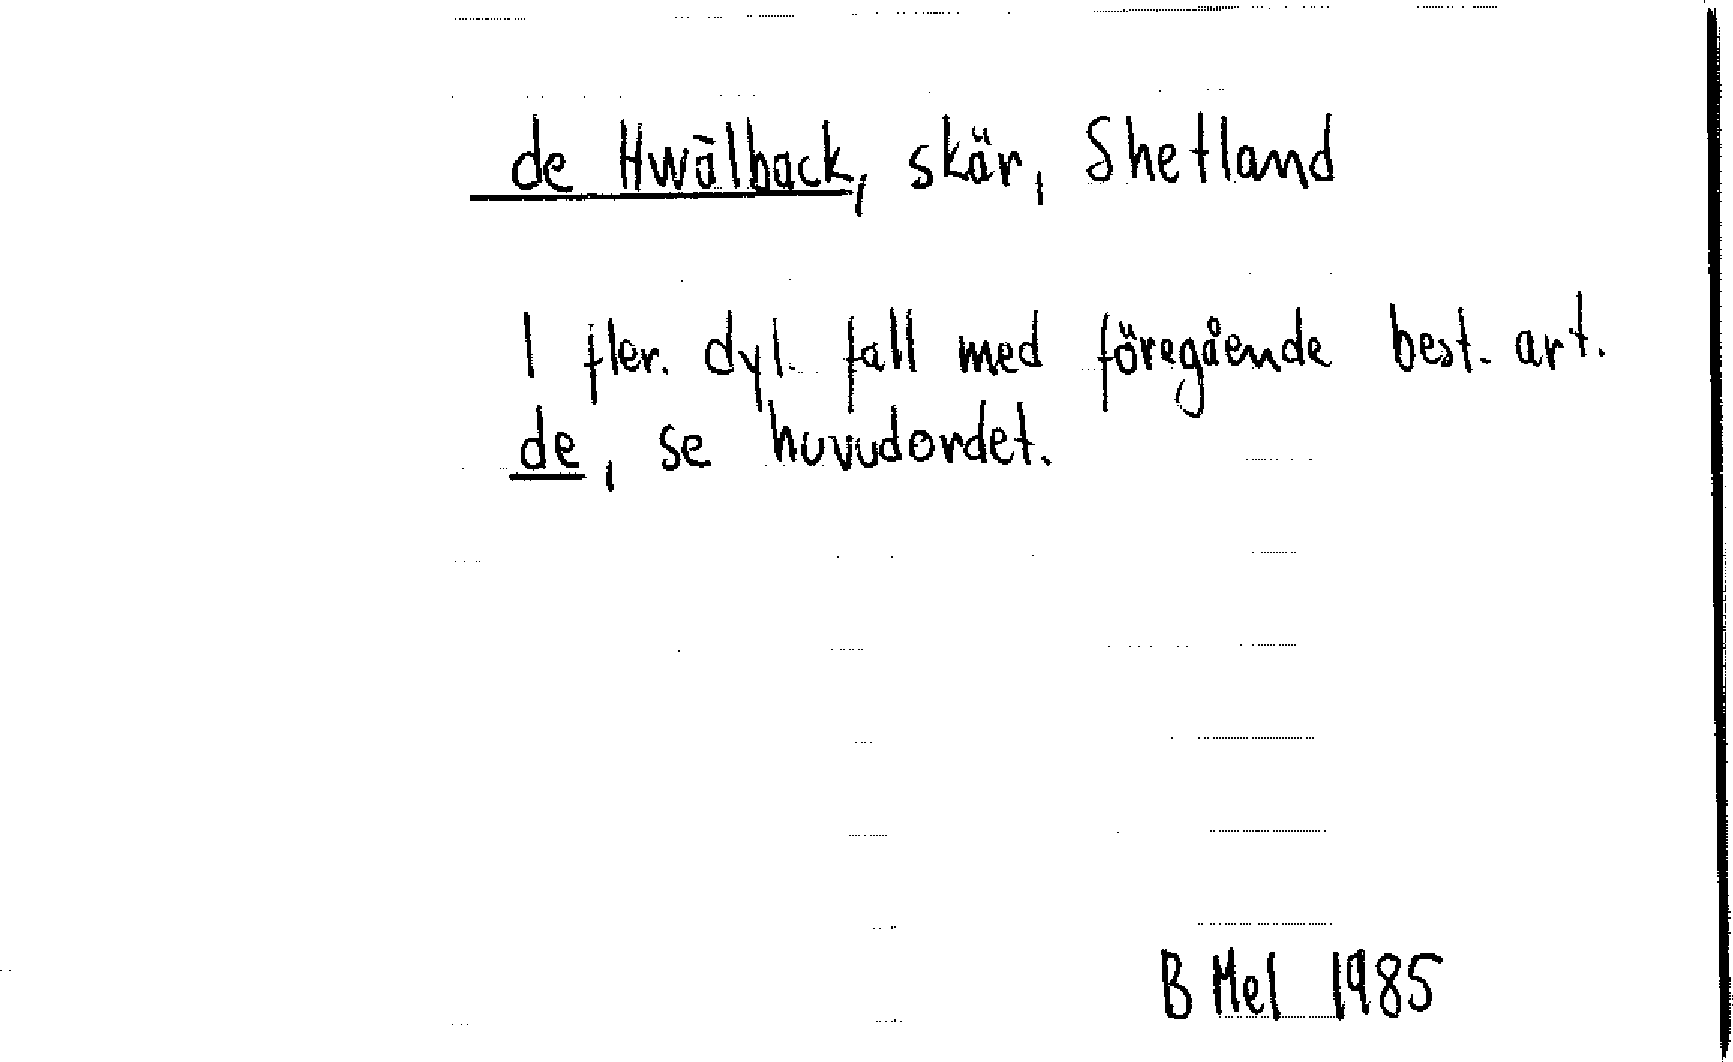 de Hwālback, skär, Shetland
I fler. dyl. fall med föregående best. art.
de, se huvudordet.
B Mel 1985